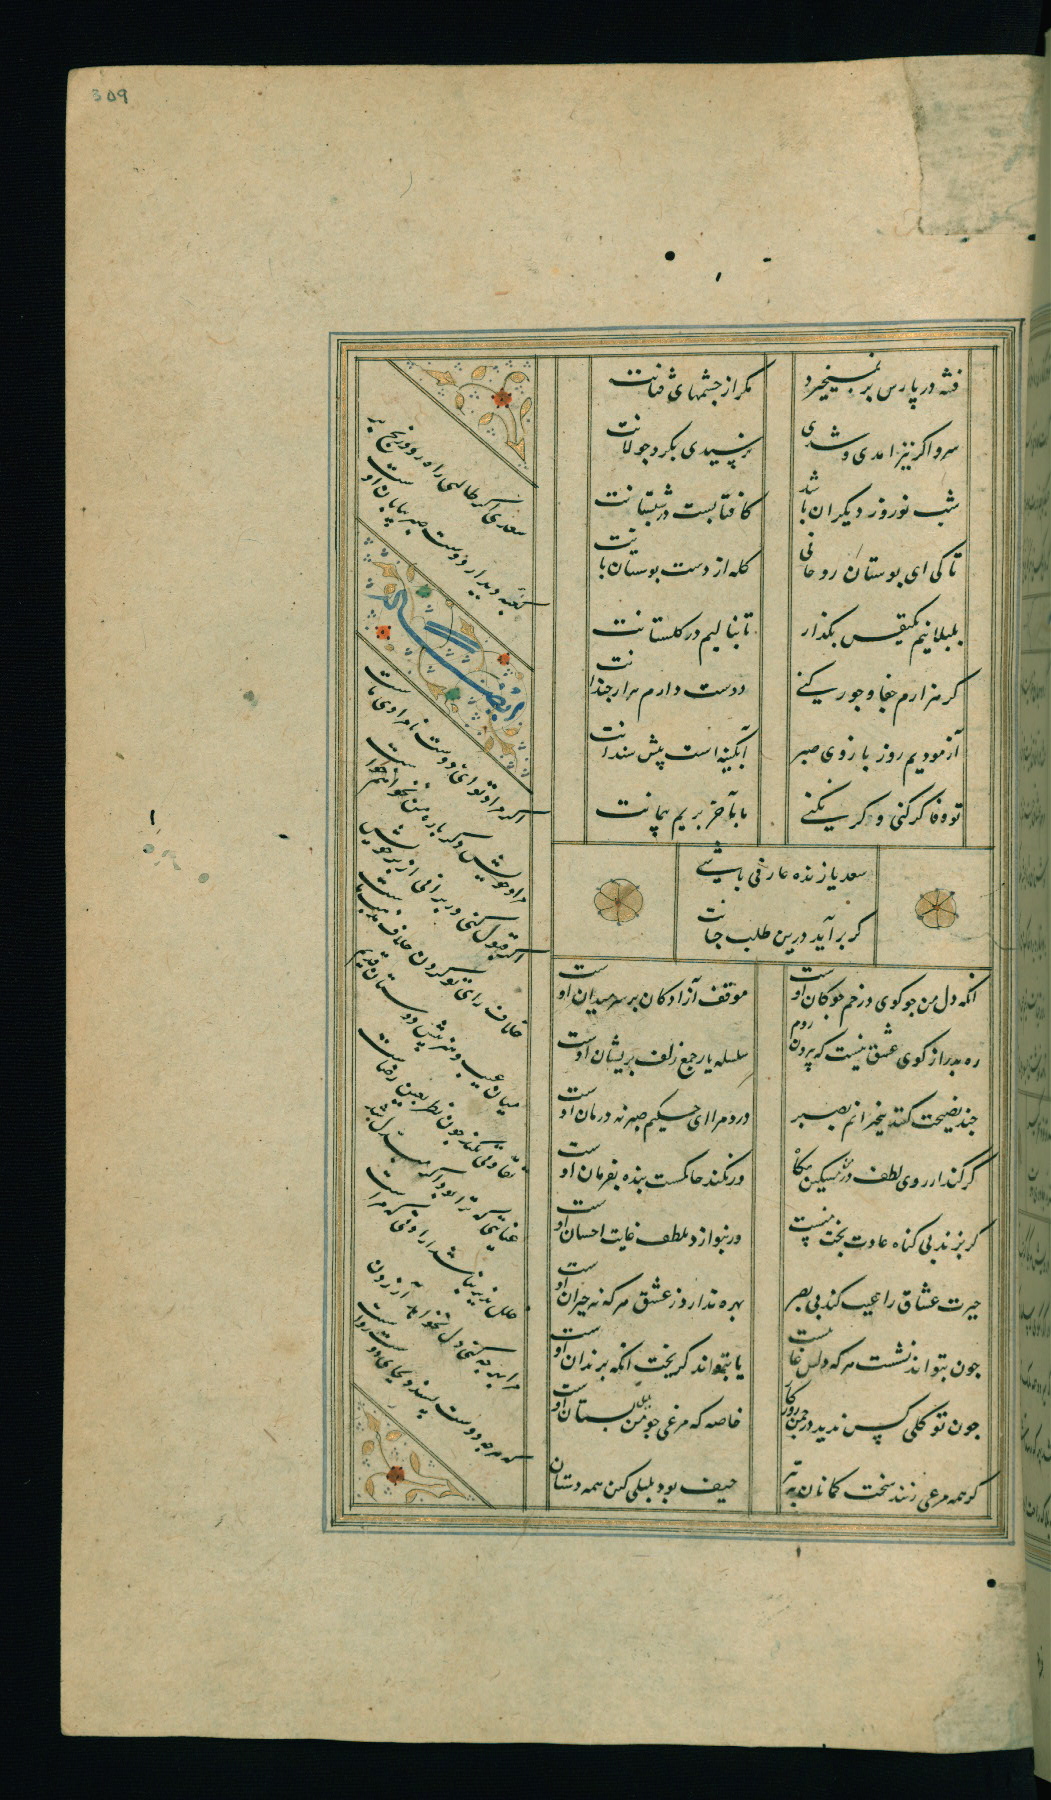 309
فتنه در پارس بر نمیخیزد
مگر از چشمهای فتانت
سرو اگر نیز آمدی و شدی
نرسیدی بگرد جولانت
شب نوروز دیگران باشد
کافتابست در شبستانت
تا کی ای بوستان روحانی
گله از دست بوستان بانت
بلبلانیم یکنفس بگذار
تا بنالیم در گلستانت
گر هزارم جفا و جور کنی
دوست دارم هزار چندانت
آزمودیم روز بازوی صبر
آبگینه است پیش سندانت
تو وفا گر کنی و گر نکنی
ما بآخر بریم پیمانت
سعدیا زنده عارفی باشی
گر برآید درین طلب جانت
آنکه دل من چو گوی در خم چوگان اوست
موقف آزادگان بر سر میدان اوست
ره بدر از کوی عشق نیست که بیرون روم
سلسله یار جمع زلف پریشان اوست
چند نصیحت کنند بیخبرانم بصبر
درد مرا ای حکیم صبر نه درمان اوست
گر کند از روی لطف در من مسکین نگاه
ور نکند حاکمست بنده بفرمان اوست
گر بزند بی گناه عادت بخت منست
ور بنوازد بلطف غایت احسان اوست
حیرت عشاق را عیب کند بی بصر
بهره ندارد ز عشق هر که نه حیران اوست
چون بتواند نشست هر که دلش غایبست
یا بتواند گریخت آنکه بزندان اوست
چون تو گلی کس ندید در چمن روزگار
خاصه که مرغی چو من بلبل بستان اوست
گر همه مرغی زنند سخت کمانان به تیر
حیف بود بلبلی کین همه دستان
سعدی اگر طالبی راه رو و رنج بر
کعبه دیدار دوست صبر بیابان اوست
ایضا له
اگر مراد تو ای دوست نامرادی ماست
مراد خویش دگر باره من نخواهم خواست
اگر قبول کنی ور برانی از بر خویش
خلاف رای تو کردن خلاف مذهب ماست
میان عیب و هنر پیش دوستان قدیم
تفاوتی نکند چون نظر بعین رضاست
عنایتی که ترا بود اگر مبدل شد
خلل پذیر نباشد ارادتی که مراست
مرا بهر چه کنی دل نخواهد آزردن
که هر چه دوست پسندد بجای دوست رواست